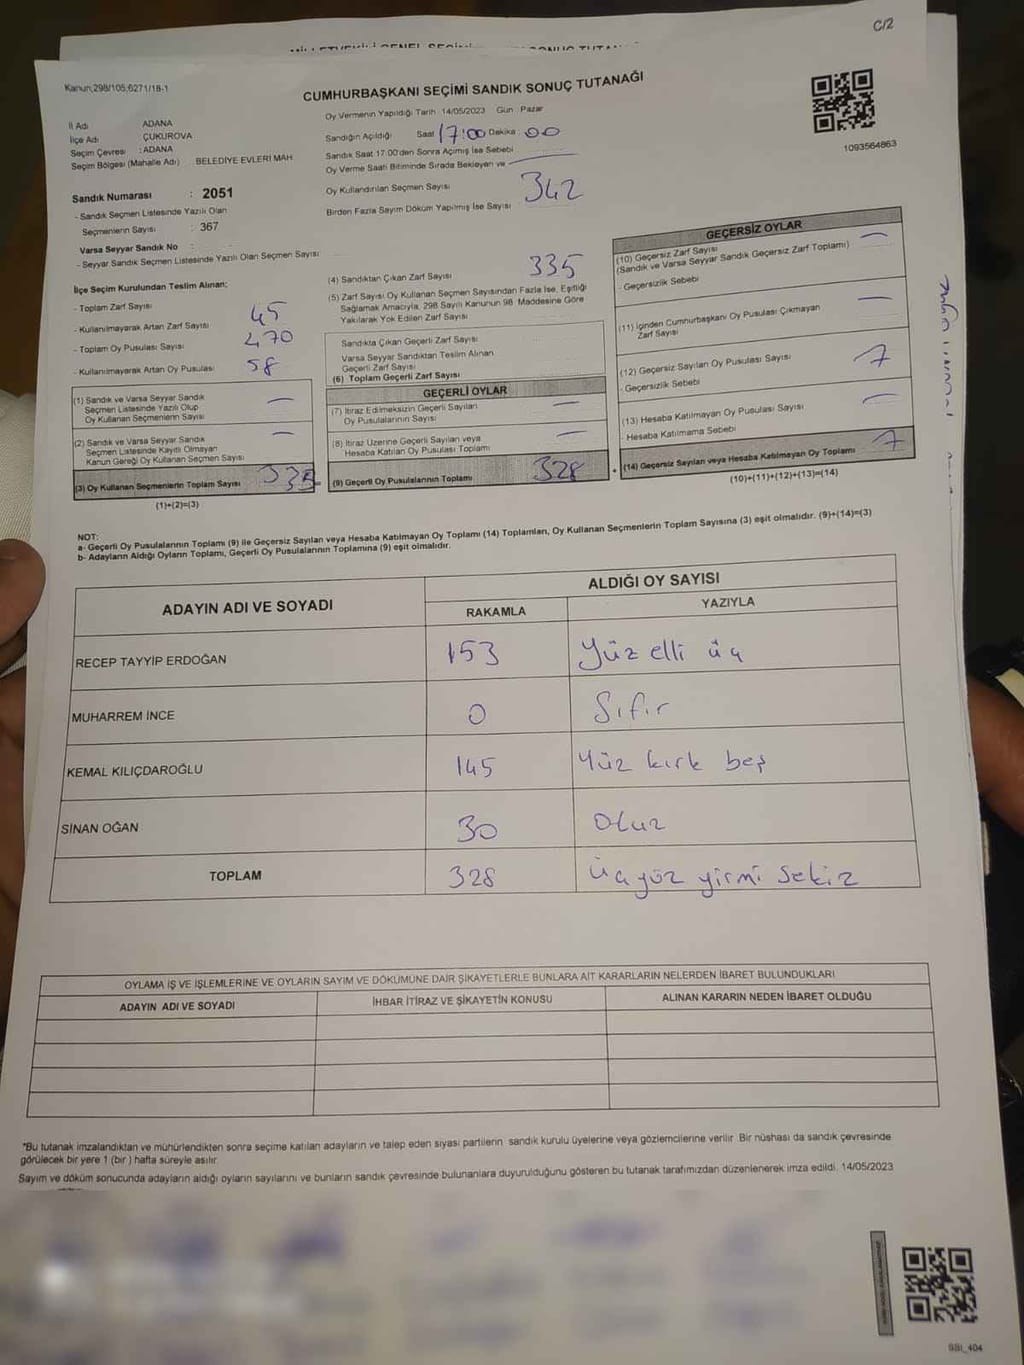 C/2
Kanun;298/105;6271/18-1
CUMHURBAŞKANI SEÇİMİ SANDIK SONUÇ TUTANAĞI
1093564863
İl Adı ADANA
İlçe Adı ÇUKUROVA
Seçim Çevresi : ADANA
Seçim Bölgesi (Mahalle Adı) BELEDİYE EVLERİ MAH
Sandık Numarası : 2051
- Sandık Seçmen Listesinde Yazılı Olan
Seçmenlerin Sayısı : 367
Varsa Seyyar Sandık No :
- Seyyar Sandık Seçmen Listesinde Yazılı Olan Seçmen Sayısı
Oy Vermenin Yapıldığı Tarih 14/05/2023 Gün Pazar
Sandığın Açıldığı Saat 17:00 Dakika 00
Sandık Saat 17.00'den Sonra Açımış İse Sebebi
Oy Verme Saati Bitiminde Sırada Bekleyen ve
Oy Kullandırılan Seçmen Sayısı 342
Birden Fazla Sayım Döküm Yapılmış İse Sayısı
İlçe Seçim Kurulundan Teslim Alınan;
- Toplam Zarf Sayısı
- Kullanılmayarak Artan Zarf Sayısı 45
- Toplam Oy Pusulası Sayısı 470
- Kullanılmayarak Artan Oy Pusulası 58
(1) Sandık ve Varsa Seyyar Sandık
Seçmen Listesinde Yazılı Olup
Oy Kullanan Seçmenlerin Sayısı —
(2) Sandık ve Varsa Seyyar Sandık
Seçmen Listesinde Kayıtlı Olmayan
Kanun Gereği Oy Kullanan Seçmen Sayısı —
(3) Oy Kullanan Seçmenlerin Toplam Sayısı 335
(1)+(2)=(3)
(4) Sandıktan Çıkan Zarf Sayısı 335
(5) Zarf Sayısı Oy Kullanan Seçmen Sayısından Fazla İse, Eşitliği
Sağlamak Amacıyla, 298 Sayılı Kanunun 98. Maddesine Göre
Yakılarak Yok Edilen Zarf Sayısı
Sandıkta Çıkan Geçerli Zarf Sayısı
Varsa Seyyar Sandıktan Teslim Alınan
Geçerli Zarf Sayısı
(6) Toplam Geçerli Zarf Sayısı
GEÇERLİ OYLAR
(7) İtiraz Edilmeksizin Geçerli Sayılan
Oy Pusulalarının Sayısı —
(8) İtiraz Üzerine Geçerli Sayılan veya
Hesaba Katılan Oy Pusulası Toplamı —
(9) Geçerli Oy Pusulalarının Toplamı 328
GEÇERSİZ OYLAR
(10) Geçersiz Zarf Sayısı —
(Sandık ve Varsa Seyyar Sandık Geçersiz Zarf Toplamı)
- Geçersizlik Sebebi
(11) İçinden Cumhurbaşkanı Oy Pusulası Çıkmayan —
Zarf Sayısı
(12) Geçersiz Sayılan Oy Pusulası Sayısı 7
- Geçersizlik Sebebi
(13) Hesaba Katılmayan Oy Pusulası Sayısı —
- Hesaba Katılmama Sebebi
(14) Geçersiz Sayılan veya Hesaba Katılmayan Oy Toplamı 7
(10)+(11)+(12)+(13)=(14)
NOT:
a- Geçerli Oy Pusulalarının Toplamı (9) ile Geçersiz Sayılan veya Hesaba Katılmayan Oy Toplamı (14) Toplamları, Oy Kullanan Seçmenlerin Toplam Sayısına (3) eşit olmalıdır. (9)+(14)=(3)
b- Adayların Aldığı Oyların Toplamı, Geçerli Oy Pusulalarının Toplamına (9) eşit olmalıdır.
ADAYIN ADI VE SOYADI ALDIĞI OY SAYISI
RAKAMLA YAZIYLA
RECEP TAYYİP ERDOĞAN 153 Yüz elli üç
MUHARREM İNCE 0 Sıfır
KEMAL KILIÇDAROĞLU 145 Yüz kırk beş
SİNAN OĞAN 30 Otuz
TOPLAM 328 üçyüz yirmi sekiz
OYLAMA İŞ VE İŞLEMLERİNE VE OYLARIN SAYIM VE DÖKÜMÜNE DAİR ŞİKAYETLERLE BUNLARA AİT KARARLARIN NELERDEN İBARET BULUNDUKLARI
ADAYIN ADI VE SOYADI İHBAR İTİRAZ VE ŞİKAYETİN KONUSU ALINAN KARARIN NEDEN İBARET OLDUĞU
*Bu tutanak imzalandıktan ve mühürlendikten sonra seçime katılan adayların ve talep eden siyasi partilerin sandık kurulu üyelerine veya gözlemcilerine verilir. Bir nüshası da sandık çevresinde
görülecek bir yere 1 (bir) hafta süreyle asılır.
Sayım ve döküm sonucunda adayların aldığı oyların sayılarını ve bunların sandık çevresinde bulunanlara duyurulduğunu gösteren bu tutanak tarafımızdan düzenlenerek imza edildi. 14/05/2023
SBI_404